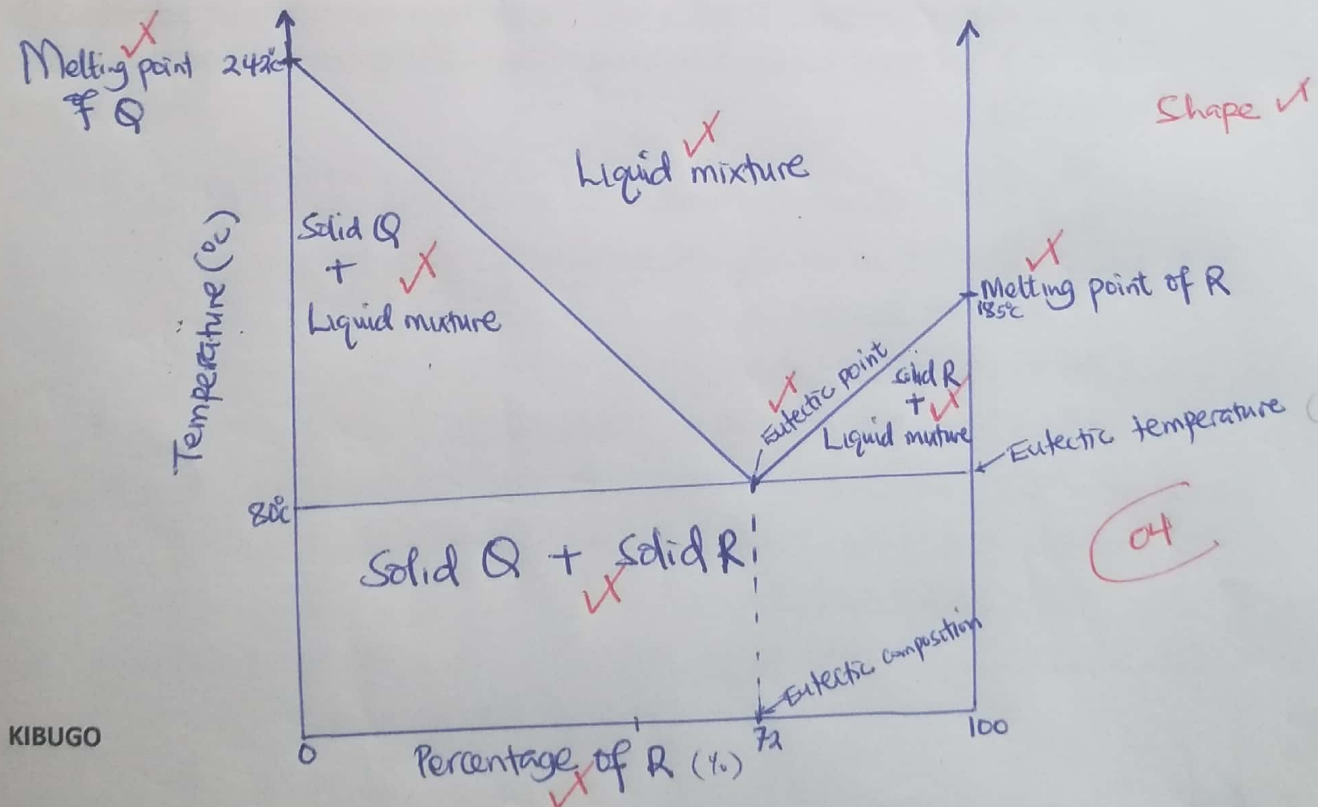 Melting point
of Q
242°C
Shape
Liquid mixture
Solid Q
+
Liquid mixture
Temperature (°C)
Melting point of R
185°C
Eutectic point
solid R
+
Liquid mixture
Eutectic temperature
80°C
Solid Q + Solid R
04
Eutectic composition
KIBUGO
0
72
100
Percentage of R (%)